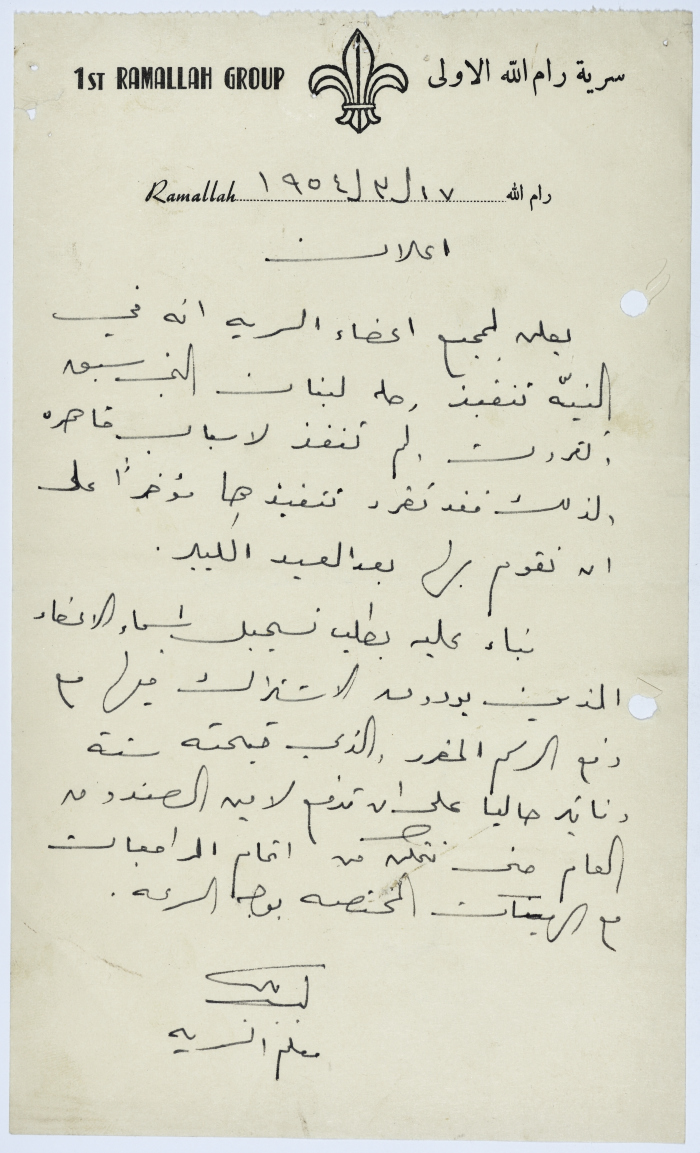 1ST RAMALLAH GROUP
سرية رام الله الاولى
Ramallah ١٧/٣/١٩٥٤ رام الله
اعلان
يعلن لجميع اعضاء السريه انه في
النيّة تنفيذ رحله لبنان التي سبق
وتقررت ولم تنفذ لاسباب قاهره
ولذلك فقد تقرر تنفيذها مؤخراً على
ان نقوم بها بعد العيد الكبير.
بناء عليه يطلب تسجيل اسماء الاعضاء
الذين يودون الاشتراك فيها مع
دفع الرسم المقرر والذي قيمته ستة
دنانير حاليا على ان تدفع لامين الصندوق
العام حتى نتمكن من اتمام المراجعات
مع الهيئات المختصه بوجه السرعه.
معلم السريه